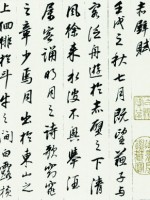 赤壁賦
壬戌之秋七月既望蘇子與
客泛舟遊於赤壁之下清
風徐来水波不興舉酒
屬客誦明月之詩歌窈窕
之章少焉月出於東山之
上徘徊於斗牛之间白露横